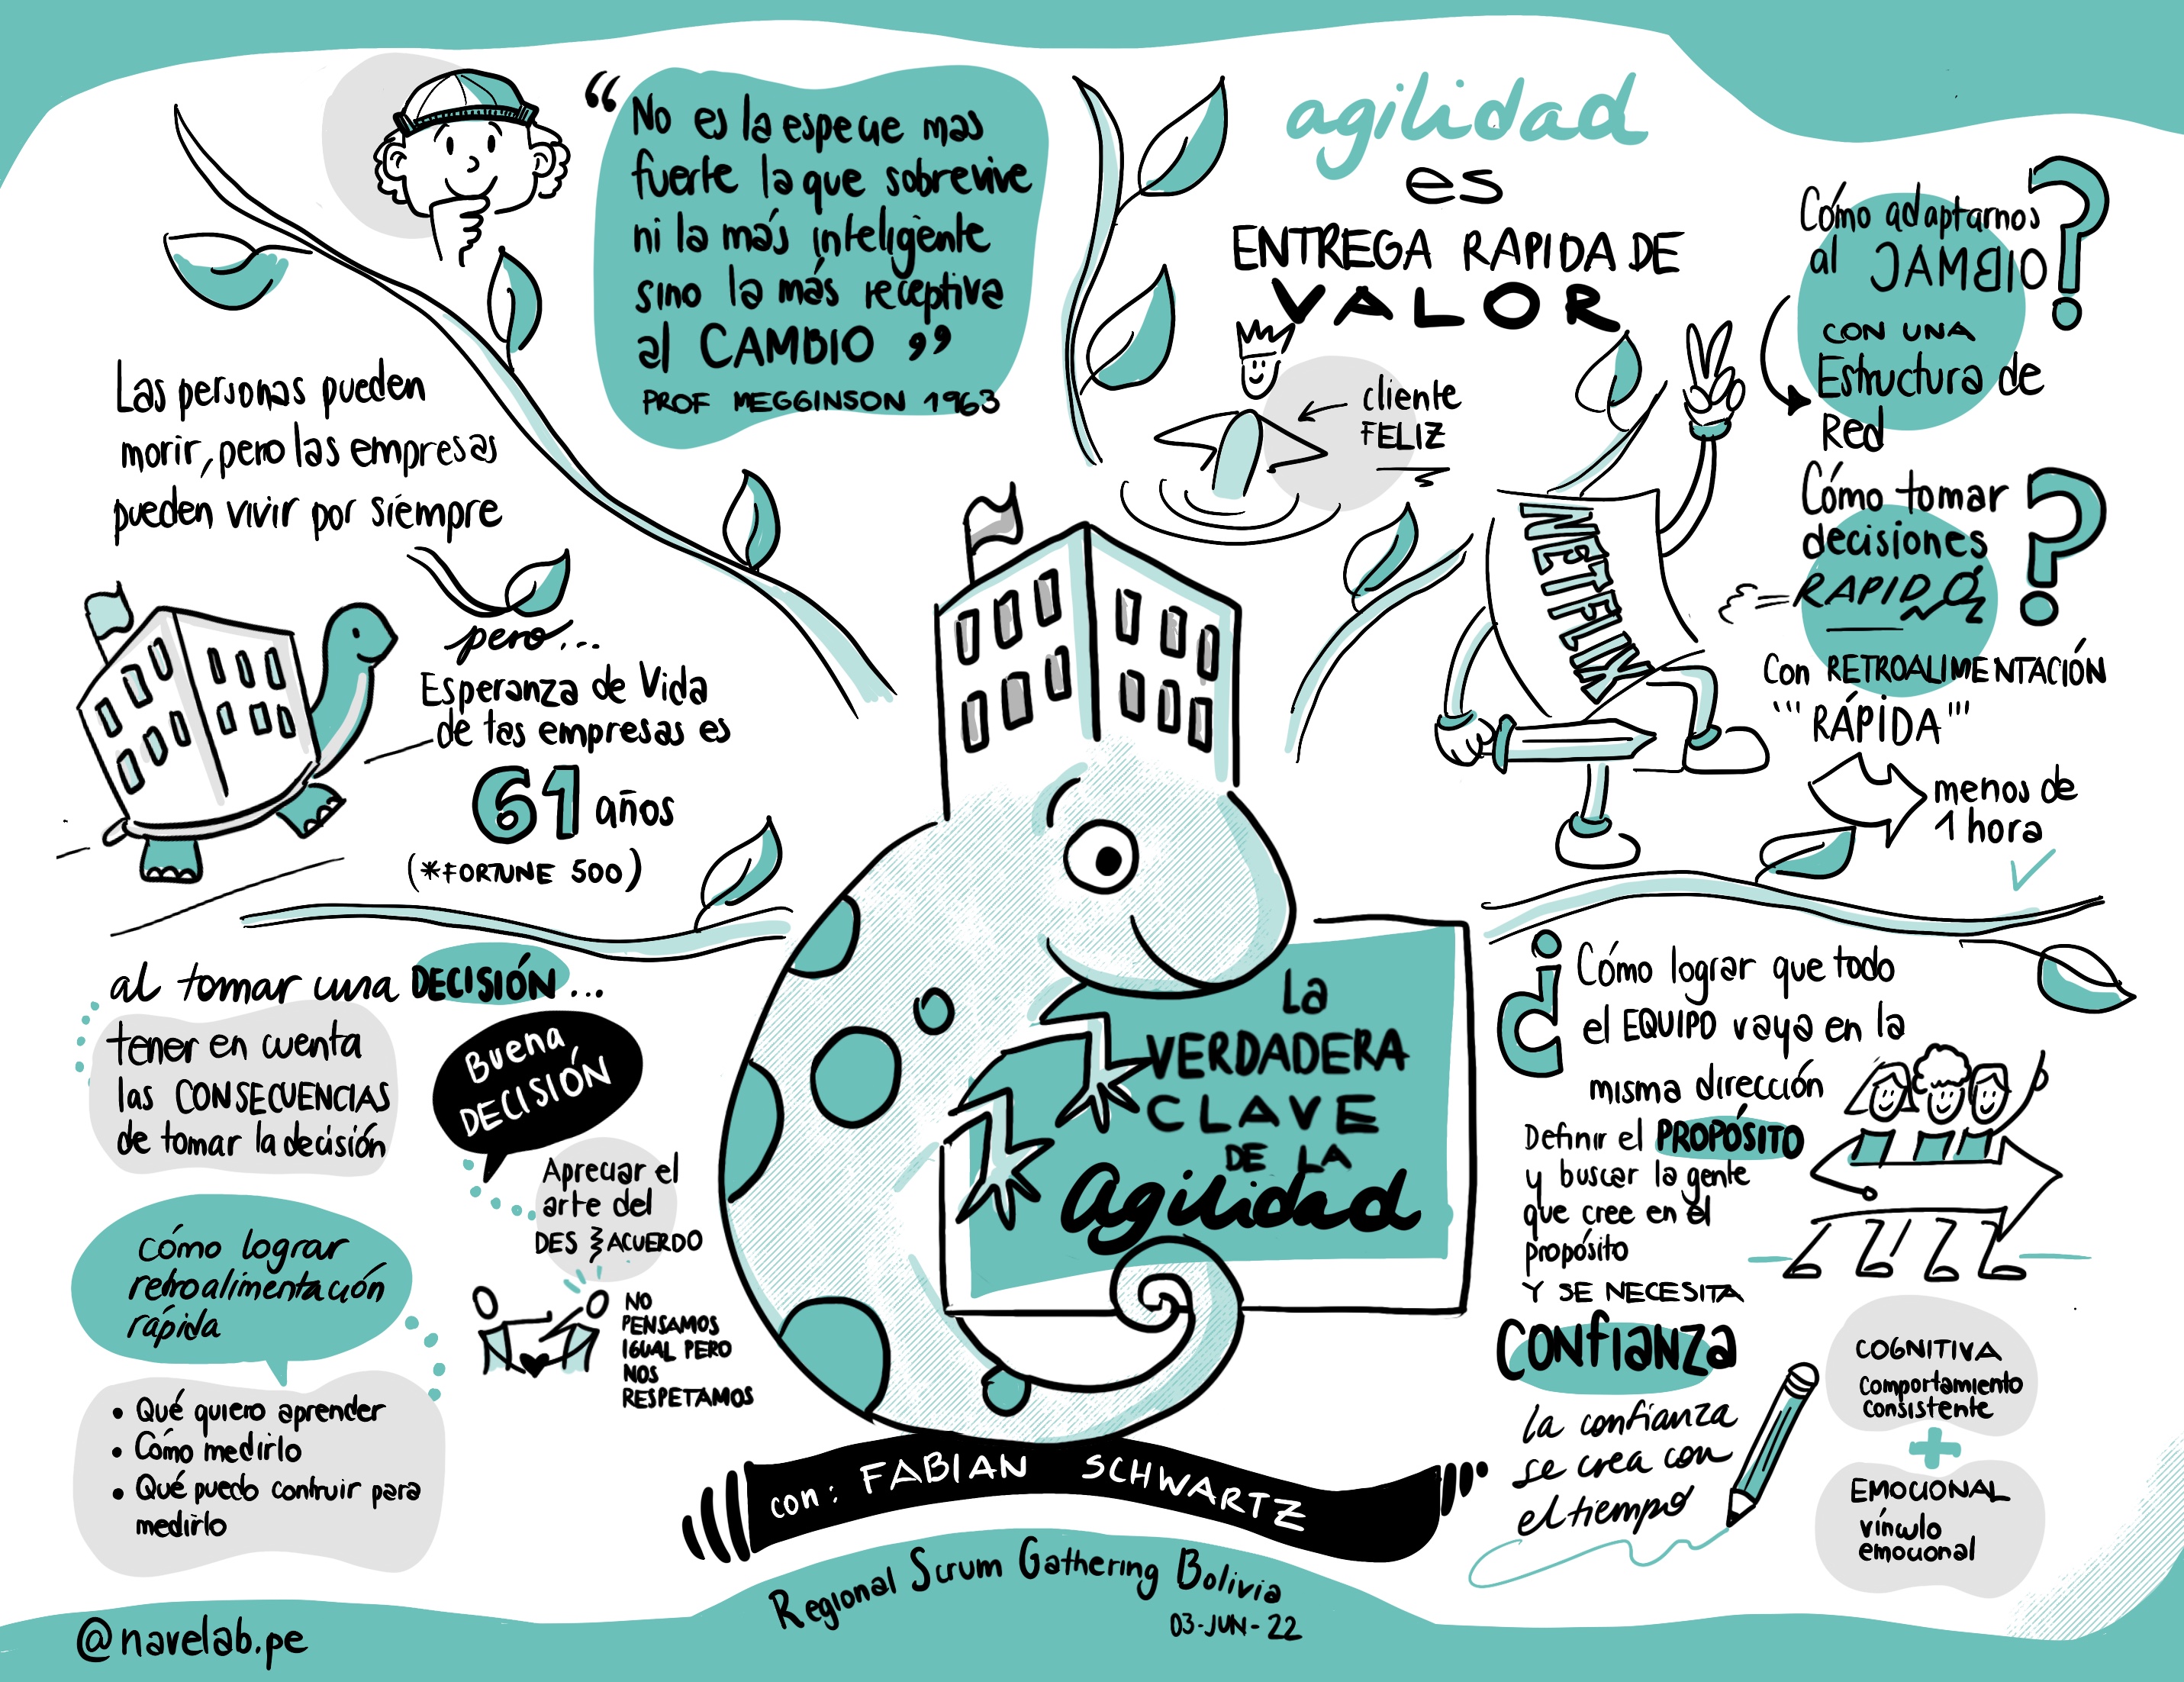 “No es la especie mas
fuerte la que sobrevive
ni la más inteligente
sino la más receptiva
al CAMBIO ”
PROF MEGGINSON 1963
Las personas pueden
morir, pero las empresas
pueden vivir por siempre
pero...
Esperanza de Vida
de las empresas es
61 años
(*FORTUNE 500)
agilidad
es
ENTREGA RAPIDA DE
VALOR
cliente
FELIZ
NETFLIX
Cómo adaptarnos
al CAMBIO?
CON UNA
Estructura de
Red
Cómo tomar
decisiones
RAPIDO?
Con RETROALIMENTACIÓN
"'RÁPIDA"'
menos de
1 hora
al tomar una DECISIÓN...
tener en cuenta
las CONSECUENCIAS
de tomar la decisión
Buena
DECISIÓN
Apreciar el
arte del
DES ACUERDO
NO
PENSAMOS
IGUAL PERO
NOS
RESPETAMOS
Cómo lograr
retroalimentación
rápida
• Qué quiero aprender
• Cómo medirlo
• Qué puedo contruir para
medirlo
La
VERDADERA
CLAVE
DE LA
agilidad
con: FABIAN SCHWARTZ
Regional Scrum Gathering Bolivia
03-JUN-22
¿Cómo lograr que todo
el EQUIPO vaya en la
misma dirección
Definir el PROPÓSITO
y buscar la gente
que cree en el
propósito
Y SE NECESITA
CONfiANZA
la confianza
se crea con
el tiempo
COGNITIVA
comportamiento
consistente
+
EMOCIONAL
vínculo
emocional
@navelab.pe